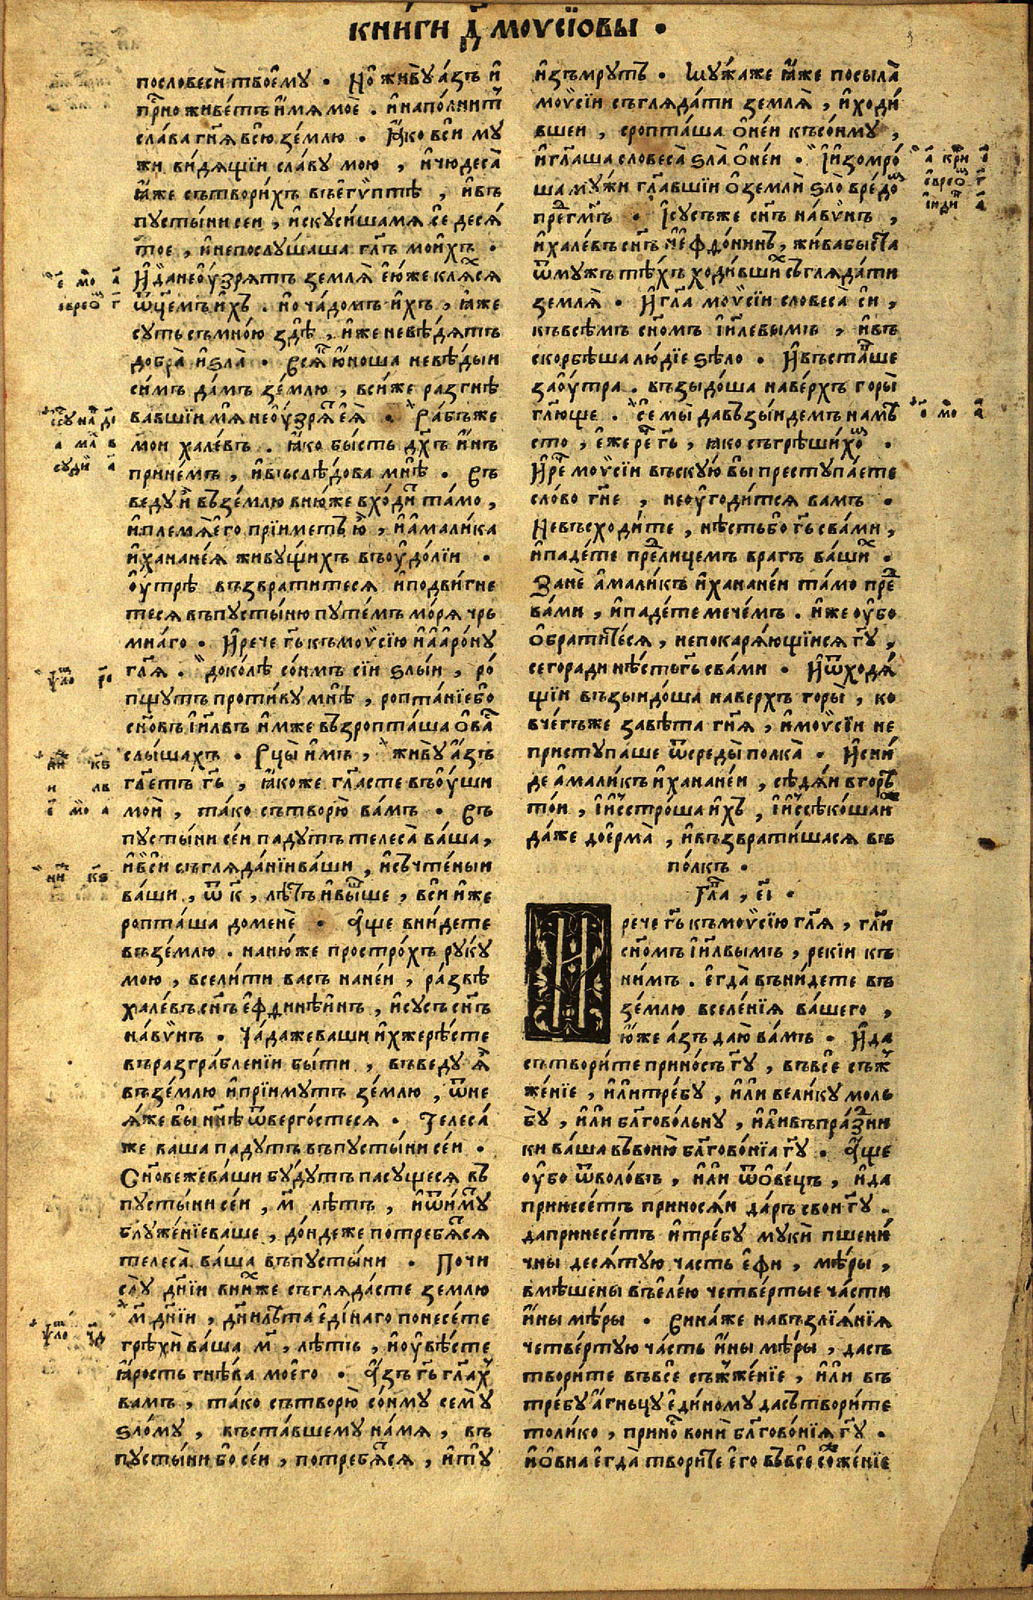 книги д҃ моѵсїѡвы
пословеси твоемꙋ . Но живꙋ азъ и
прⷭ҇но живетъ имя мое . и наполнитⸯ
слава гн҃я всю землю . Яко вси мꙋ
жи видящїи славꙋ мою , и чюдеса
яже сътворихъ въегѵптѣ , ивъ
пꙋстыни сеи , искꙋсишамя се деся
тое , инепослꙋшаша гл҃ъ моихъ .
И данеоузрятъ земля еюже кляхся
ѿц҃емъ ихъ . но чадомъ ихъ , яже
сꙋть съмною здѣ , иже невѣдятъ
добра и ѕла . Всяⷦ҇ юноша невѣдыи
симъ дамъ землю , всиже разгнѣ
вавшїи мя неоузрятⸯ ея . Рабъже
мои халевъ . яко бысть дх҃ъ инъ
принемъ , ивъслѣдова мнѣ . Въ
ведꙋ и въземлю внюже входи тамо ,
иплемя его прїиметъ ю , и амалика
иханаонея живꙋщихъ въоудолїи .
оутрѣ възвратитеся иподвигне
теся въпꙋстыню пꙋтемъ моря чръ
мнаго . И рече гь҃ къмоѵсїю иааронꙋ
гл҃я . доколѣ сонмъ сїи ѕлыи , ро
пщꙋтъ противꙋ мнѣ , роптанїебо
сн҃овъ іил҃въ имже възропташа овасъ
слышахъ . Рцы имъ , живꙋ азъ
гл҃етъ гь҃ , якоже гл҃асте въоуши
мои , тако сътворю вамъ . Въ
пꙋстыни сеи падꙋтъ телеса ваша ,
ивси съгляданїи ваши , исъчтеныи
ваши , ѿ к҃ , лѣтъ ивыше , вси иже
ропташа домене . Аще внидете
въземлю . нанюже прострохъ рꙋкꙋ
мою , вселити васъ наней , развѣ
халевъ сн҃ъ ефдиниинъ , исꙋсъ сн҃ъ
навѵнъ . Чадаже ваши ихжерѣсте
въразграбленїи быти , въведꙋ я
въземлю ипрїимꙋтъ землю , ѿне
яже вы нн҃ѣ ѿвергостеся . Телеса
же ваша падꙋтъ въпꙋстыни сеи .
Сн҃овежеваши бꙋдꙋтъ пасꙋщеся въ
пꙋстыни сеи , м҃ лѣтъ ,
блꙋженїеваше , дондеже потребятся
телеса ваша въпꙋстыни . Почи
слꙋ дн҃їи внихже съглядасте землю
м҃ дн҃їи , дн҃ь лѣта единаго понесете
грѣхи ваша м҃ , лѣтъ , иоувѣсте
ярость гнѣва моего . Азъ гь҃ гл҃ахъ
вамъ , тако сътворю сонмꙋ семꙋ
ѕломꙋ , въставшемꙋ намя , въ
пꙋстыни бо сеи , потребятся , итꙋ
изъмрꙋтъ . Мꙋжаже яже посыла
моѵсїи съглядати земля , иходи
вшеи , сропташа онеи къ сонмꙋ ,
игл҃аша словеса ѕла онеи . Іизомро
ша мꙋжи гл҃авшїи оземли ѕло вредо
пред гм҃ъ . Ісꙋсъже сн҃ъ навѵнъ ,
ихалевъ сн҃ъ іефдонинъ , живабыста
ѿмꙋжъ тѣхъ ходившихъ съглядати
земля . И гл҃а моѵсїи словеса си ,
къвсѣмъ сн҃омъ іил҃евымъ , ивъ
скорбѣша людїе ѕѣло . Ивъставше
заоутра . възыдоша наверхъ горы
гл҃юще . се мы давъзыидемъ намѣ
сто , ежерече гь҃ , яко съгрѣшихомъ .
И рече моѵсїи въскꙋю вы престꙋпаете
слово гн҃е , неоугодится вамъ .
Невъсходите , нѣстьбо гь҃ свами ,
ипадете предлицемъ врагъ вашихъ .
Зане амаликъ иханаонеи тамо пред
вами , ипадете мечемъ . иже оубо
обратистеся , непокаряющїися гꙋ҃ ,
сегоради нѣсть гь҃ свами . Иѿходя
щїи възыидоша наверхъ горы , ко
вчегъже завѣта гн҃я , имоѵсїи не
пристꙋпаше ѿсреды полка . Исни
де амаликъ иханаонеи , сѣдяи вгорѣ
тои , іисстроша ихъ , іиссѣкошаи
даже доерма , ивъзвратишася въ
полкъ .
Гл҃а , е҃і .
И рече гь҃ къмоѵсїю гл҃я , гл҃и
сн҃омъ іил҃вымъ , рекїи къ
нимъ . егда вънидете въ
землю вселенїя вашего ,
юже азъ даю вамъ . И да
сътворите приносъ гꙋ҃ , въвсе съж
женїе , или требꙋ , или великꙋ моль
бꙋ , или бл҃говольнꙋ , иливъпраздни
ки ваша въвоню бл҃говонїя гꙋ҃ . Аще
оубо ѿволовъ , или ѿовецъ , ида
принесетъ приносяи даръ свои гꙋ҃ .
дапринесетъ итребꙋ мꙋки пшени
чны десятꙋю часть ефи , мѣры ,
вмѣшены въелею четвертые части
ины мѣры . Винаже навъзлїянїя
четвертꙋю часть ины мѣры , дасъ
творите въвсе съжженїе , или въ
требꙋ агньцꙋ единомꙋ дасътворите
толико , приносⸯ вони бл҃говонїя гꙋ҃ .
иовна егда творите его въвсесожженїе